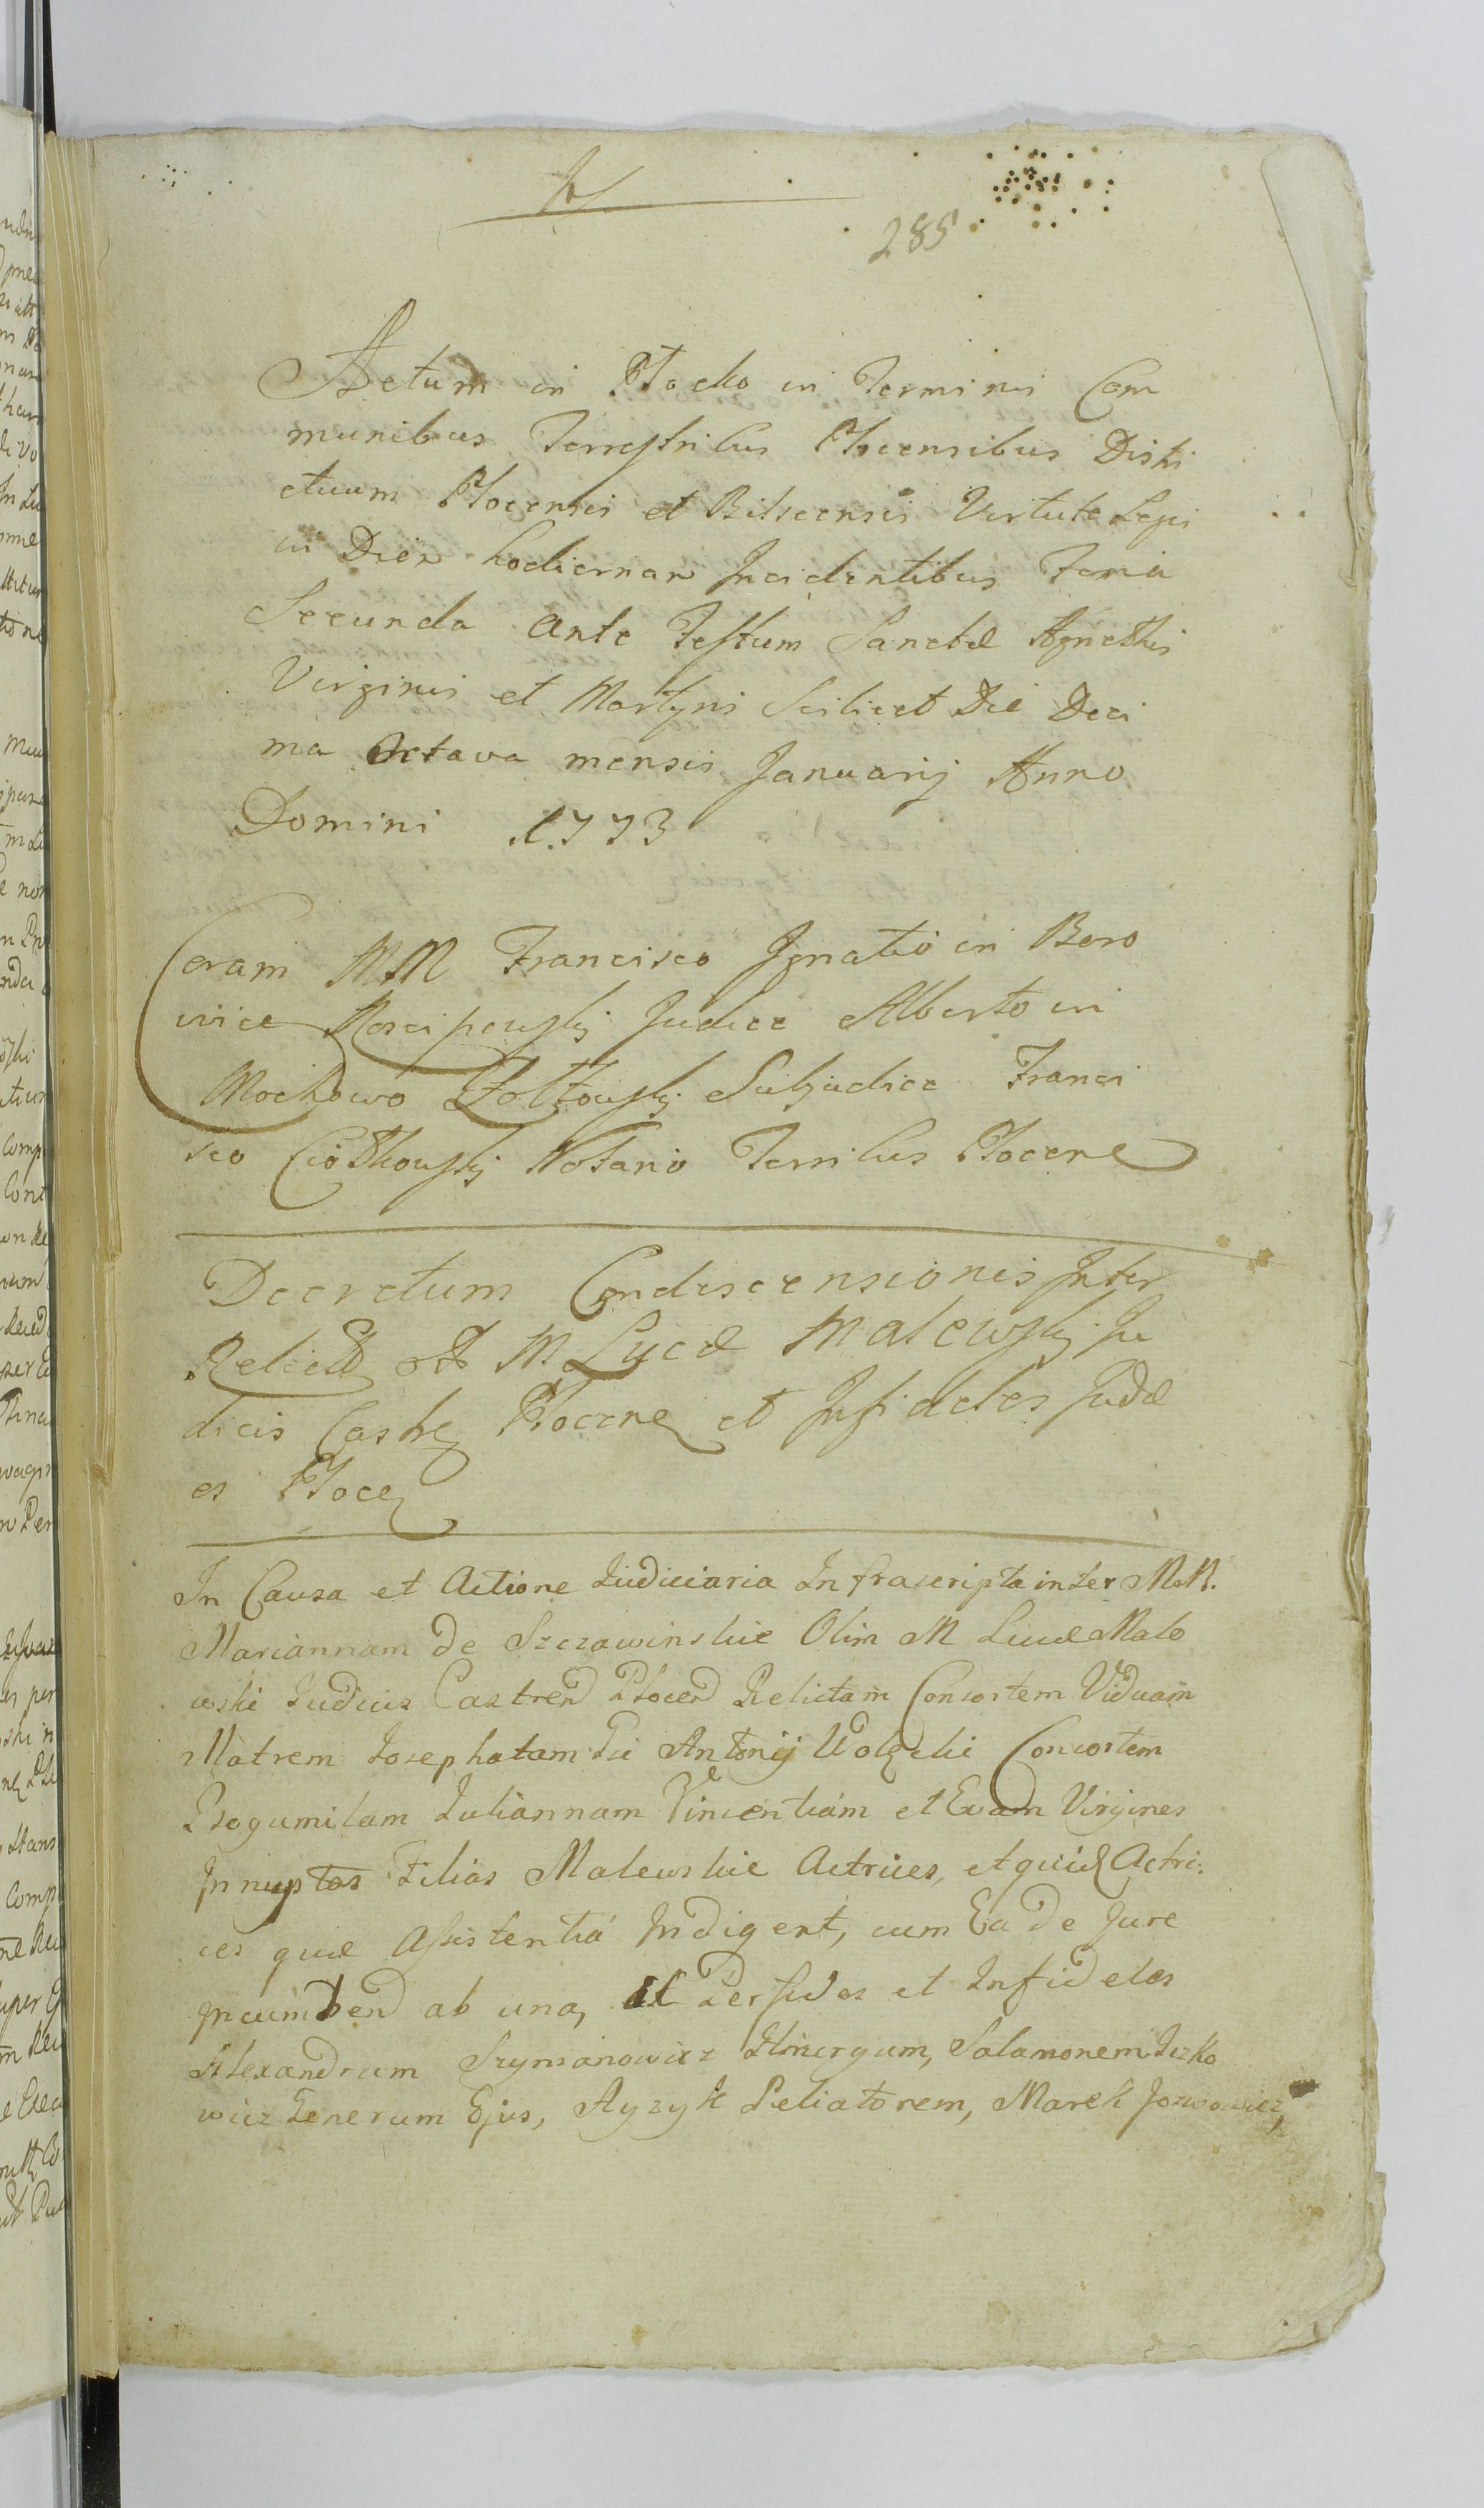 285
Actum in Płocko in Terminis Com
munibus Terrestribus Plocensibus Distri
ctuum Plocensis et Bilscensis Virtute Legis
in Diem hodiernam Incidentibus Feria
Secunda ante Festum Sanctæ Agnethis
Virginis et Martyris Scilicet Die Deci
ma Octava mensis Januarij Anno
Domini 1773
Coram MM Francisco Ignatio in Boro
wice Koscipowskj Judice Alberto in
Mochowo Zołtowskj Subjudice Franci
sco Ciołkowskj Notario Terribus Plocen
Decretum Condescensionis Inter
Relictã M Lucæ Malewskj Ju
dicis Castre Plocen et Infideles Judæ
os Ploce
In Causa et Actione Iudiciaria Infrascripta inter MM.
Mariannam de Szczawinskie Olim M Lucæ Male
wski Iudicis Castren Plocen Relictam Consortem Viduam
Matrem Iosephatam Antonij Consortem
Bogumilam Iuliannam Vincentiam et Evam Virgines
Innuptas Filias Malewskie Actrices, et quidẽ Actri
ces quæ Assistentiá Indigent, cum Ea de Jure
Incumben ab una, et Perfidos et Infideles
Alexandrum Szymanowicz Chirurgum, Salamonem Iczko
wicz Generum Ejus, Ayzyk Peliatorem, Marek Jozwowicz,